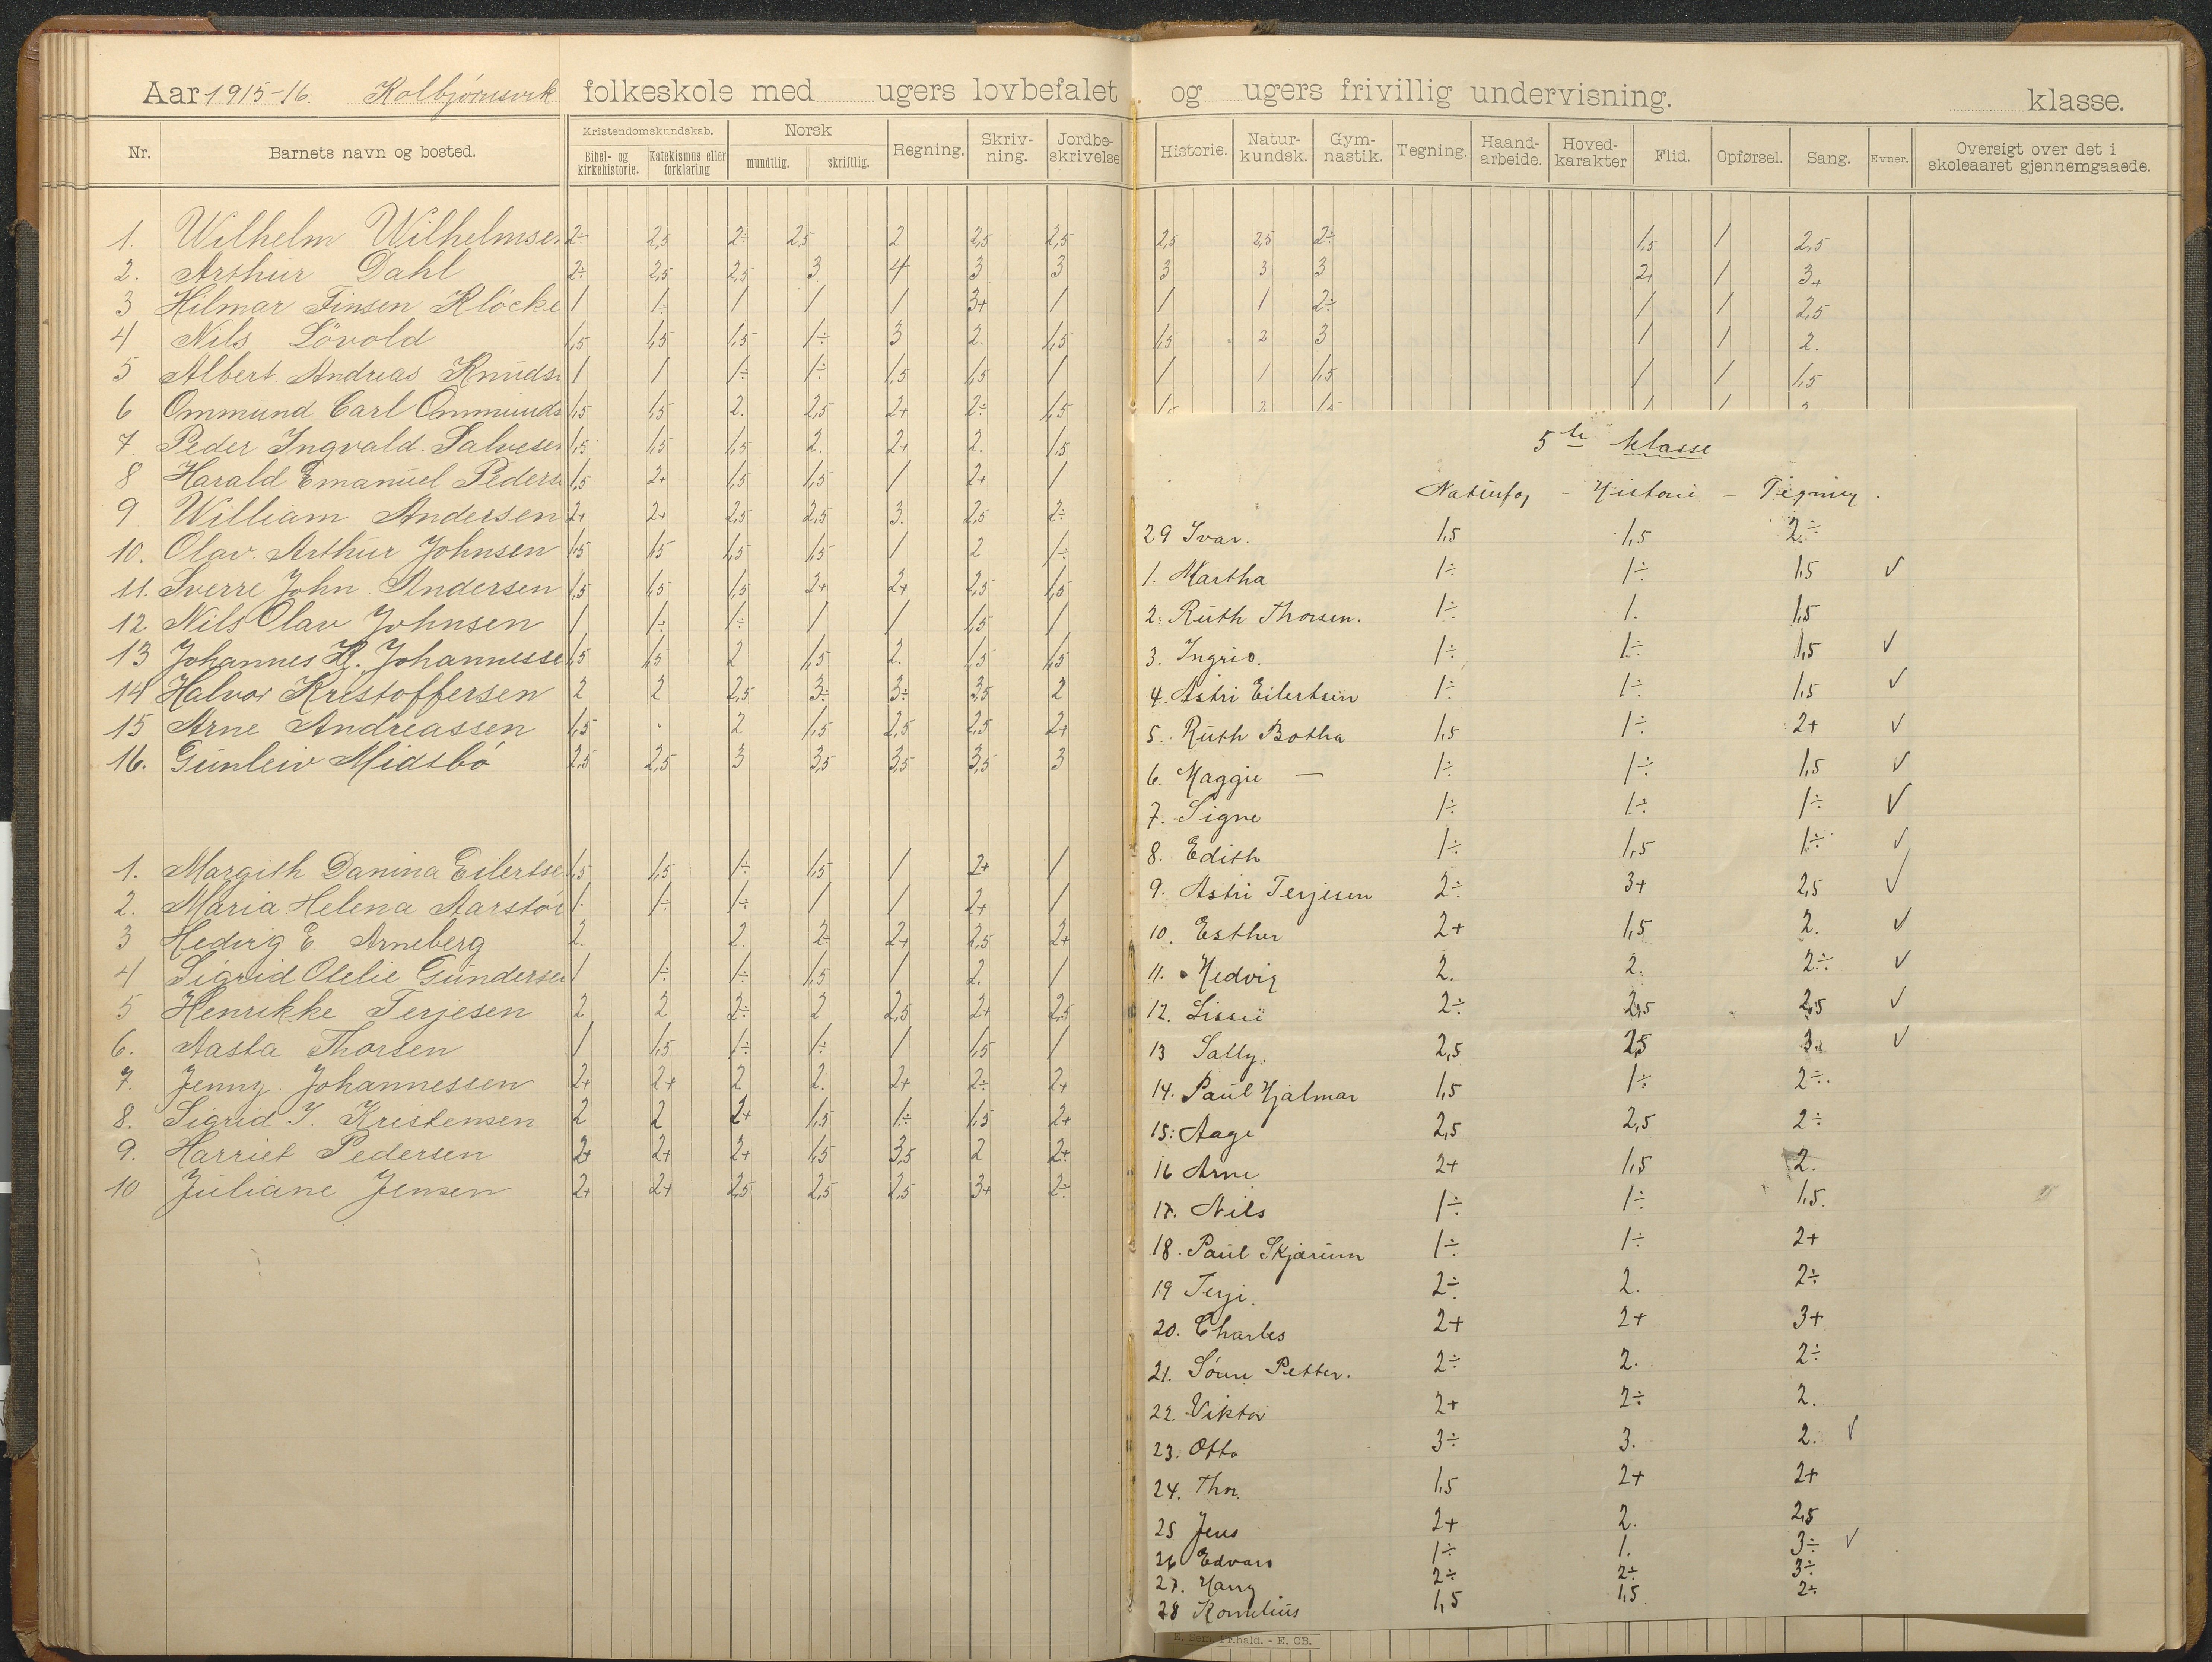 Aar 1915-16. Kolbjørnsvik folkeskole med ugers lovbefalet og ugers frivillig undervisning. klasse.
Nr. Barnets navn og bosted. Kristendomskundskab. Bibel- og kirkehistorie. Katekismus eller forklaring Norsk mundtlig. skriftlig. Regning. Skriv-ning. Jordbe-skrivelse Historie. Natur-kundsk. Gym-nastik. Tegning. Haand-arbeide. Hoved-karakter Flid. Opførsel. Sang. Evner. Oversigt over det i skoleaaret gjennemgaaede.
1. Wilhelm Wilhelmse 2÷ 2,5 2÷ 2,5 2 2,5 2,5 2,5 2,5 2÷ 1,5 1 2,5
2. Arthur Dahl 2÷ 2,5 2,5 3 4 3 3 3 3 3 2+ 1 3+
3 Hilmar Finsen Klöcke 1 1÷ 1 1 1 3+ 1 1 1 2÷ 1 1 2,5
4 Nils Lövold 1,5 1,5 1,5 1÷ 3 2. 1,5 1,5 2 3 1 1 2.
5 Albert Andreas Knuds 1 1 1÷ 1÷ 1,5 1,5 1 1 1 1,5 1 1 1,5
6 Ommund Carl Ommunds 1,5 1,5 2. 2,5 2+ 2÷ 1,5
7. Peder Ingvald Salvesen 1,5 1,5 1,5 2. 2+ 2. 1,5
8 Harald Emanuel Peders 1,5 2+ 1,5 1,5 1 2+ 1
9 William Andersen 2+ 2+ 2,5 2,5 3. 2,5 2÷
10. Olav Arthur Johnsen 1,5 1,5 1,5 1,5 1 2 1÷
11. Sverre John Andersen 1,5 1,5 1,5 2+ 2+ 2,5 1,5
12 Nils Olav Johnsen 1 1÷ 1÷ 1 1 1,5 1
13 Johannes H. Johannesse 1,5 1,5 2 1,5 2. 1,5 1,5
14 Halvor Kristoffersen 2 2 2,5 3÷ 3÷ 3,5 2
15 Arne Andreassen 1,5 - 2 1,5 2,5 2,5 2+
16. Gunleiv Midtbö 2,5 2,5 3 3,5 3,5 3,5 3
1. Margith Danina Eilertse 1,5 1,5 1÷ 1,5 1 2+ 1
2. Maria Helena Aarstöi 1÷ 1÷ 1÷ 1 1 2+ 1
3 Hedvig E Arneberg 2. 2. 2÷ 2+ 2,5 2+
4 Sigrid Otelie Gundersen 1 1÷ 1÷ 1,5 1 2. 1
5 Henrikke Terjesen 2 2 2÷ 2 2,5 2+ 2,5
6. Aasta Thorsen 1 1,5 1÷ 1÷ 1 1,5 1
7. Jenny Johannessen 2+ 2+ 2 2. 2+ 2÷ 2+
8. Sigrid J. Kristensen 2 2 2+ 1,5 1÷ 1,5 2+
9. Harriet Pedersen 2+ 2+ 2+ 1,5 3,5 2 2+
10 Juliane Jensen 2+ 2+ 2,5 2,5 2,5 3+ 2÷
5te klasse
Naturfag - Historie - Tegning.
29 Ivar. 1,5 1,5 2÷
1. Martha 1÷ 1÷ 1,5 ✓
2. Ruth Thorsen. 1÷ 1. 1,5
3. Ingrid. 1÷ 1÷ 1,5 ✓
4. Astri Eilertsen 1÷ 1÷ 1,5 ✓
5. Ruth Botha 1,5 1÷ 2+ ✓
6. Maggie — 1÷ 1÷ 1,5 ✓
7. Signe 1÷ 1÷ 1÷ ✓
8. Edith 1÷ 1,5 1÷ ✓
9. Astri Terjesen 2÷ 3+ 2,5 ✓
10. Esther 2+ 1,5 2. ✓
11. Hedvig 2. 2. 2÷ ✓
12. Lissi 2÷ 2,5 2,5 ✓
13 Sally. 2,5 2,5 3. ✓
14. Paul Hjalmar 1,5 1÷ 2÷.
15: Aage 2,5 2,5 2÷
16 Arne 2+ 1,5 2.
17. Nils 1÷ 1÷ 1,5.
18. Paul Skjærum 1÷ 1÷ 2+
19 Terje. 2÷ 2. 2÷
20. Charles 2+ 2+ 3+
21. Sören Petter. 2÷ 2. 2÷
22. Viktor 2+ 2÷ 2.
23. Otto 3÷ 3. 2. ✓
24. Thor. 1,5 2+ 2+
25 Jens 2+ 2. 2,5
26 Edvard 1÷ 1. 3÷ ✓
27. Harry 2÷ 2÷ 3÷
28 Kornelius 1,5 1,5. 2÷
E. Sem, Fr.hald. - E. CB.